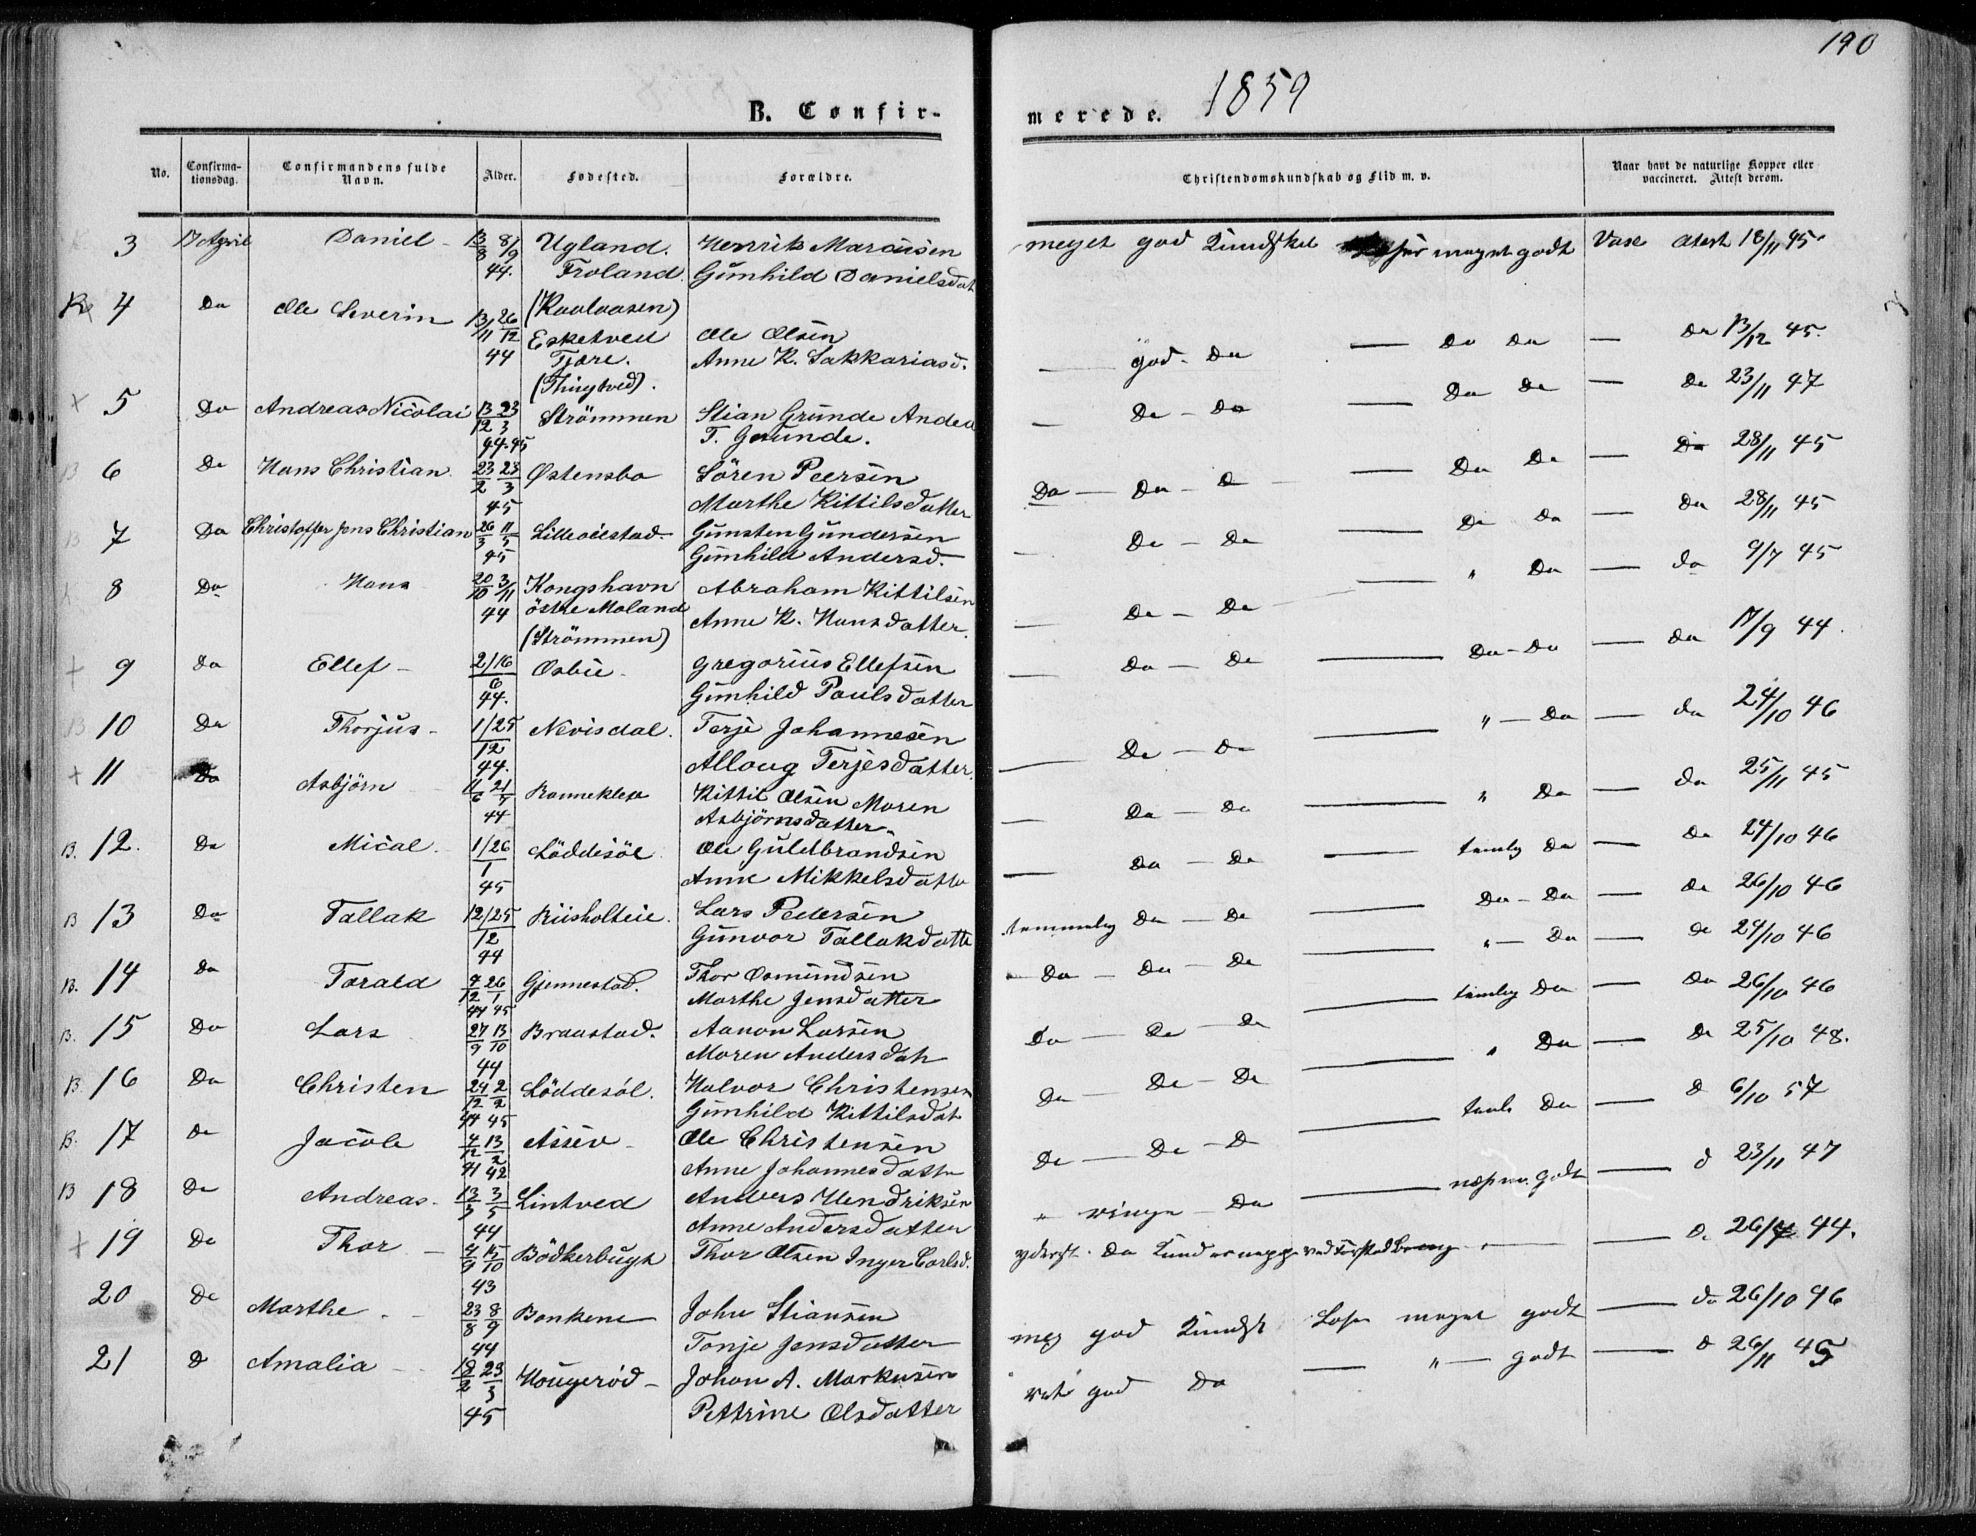 190
1859
B. Confir-
merede.
No.
Confirma-
tionsdag.
Confirmandens fulde
Navn.
Alder.
Fødested.
Forældre.
Christendomskundskab og Flid m. v.
Naar havt de naturlige Kopper eller
vaccineret. Attest derom.
3 17 April Daniel - 13/8 8/9 Ugland. Henrik Marcusen meget god Kundskab meget godt Vase Atest 18/11 45.
44. Froland. Gunhild Danielsdat
4 Do Ole Severin 13/11 26/12 (Ravlaasen)
Eskelved Ole Olsen god. Do Do Do Do 13/12 45.
44 Tjøre. Anne K. Sakkariasd.
(Thingtved).
5 Do Andreas Nicolai 13/12 23/3 Strömmen Stian Grunde Andea Do - Do Do Do Do 23/11 47
44.45 T. Grunde.
6 Do Hans Christian 23/2 23/3 Østensbo Sören Peersen Do - Do - D Do Do Do 28/11 45
45 Marthe Kittilsdatter
7 Do Christoffer Jens Christian 26/3 11/5 Lilleoiestad. Gunsten Gundersen Do - Do Do Do Do 28/11 45
45 Gunhild Andersd.
8 Do Hans 20/10 3/11 Kongshavn Abraham Kittilsen Do - Do " Do do 9/7 45
44 östre Moland Anne K. Hansdatter.
(Strömmen)
9 Do Ellef - 2/16 Osbu. Gregorius Ellefsen Do - Do Do - Do Do 17/9 44.
6
44. Gunhild Paulsdatter
10 Do Thorjus - 1/25 Nevisdal. Terje Johannesen Do - Do " - Do do 24/10 46
12
44. Alloug Terjesdatter.
11 Do Asbjörn 11/6 21/7 Ranneklev Kittil Olsen Maren Do - Do " Do Do 25/11 45
44 Asbjörnsdatter
B. 12. Do Mical. 1/26 Löddesöl Ole Guldbrandsen Do - Do temlig Do Do 24/10 46
1
45 Anne Mikkelsdatte
B 13 Do Tallak 12/25 Riisholteie. Lars Pedersen temmelig Do - Do Do - Do Do 26/10 46
12
44 Gunvor Tallakdatte
B. 14 Do Torald 7/12 26/1 Gjennestad. Thor Osmundsen Do - Do - Do " - Do do 24/10 46
44 45 Marthe Jensdatter
B. 15 Do Lars 27/9 13/10 Braastad. Aanon Larsen Do - Do - Do temlig Do Do 26/10 46
44 Maren Andersdatr
B. 16 Do Christen 24/12 2/2 Löddesöl. Halvor Christensen Do Do - Do " Do Do 25/10 48.
44 45 Gunhild Kittilsdat
B. 17 Do Jacob 4/12 13/2 Assev - Ole Christensen Do - Do - D Do D 6/10 57
41 42 Anne Johannesdattr
B 18 Do Andreas - 13/3 3/5 Lintved Anders Hendriksen " ringe - Do godt d 23/11 47
44 Anne Andersdatter
19 Do Thor - 4/9 15/10 Bödkerbugt Thor Olsen Inger Carlsd. yderst. Do D. 26/7 44.
43
20 Do Marthe. - 23/8 8/9 Bankene John Stiansen meg god Kundsk Læser meget godt Do 26/10 46
44 Tonje Jensdatter
21 D Amalia - 18/2 23/3 Hougeröd - Johan A. Markusen god Do " - godt D 26/11 45
45 Pettrine Olsdatter